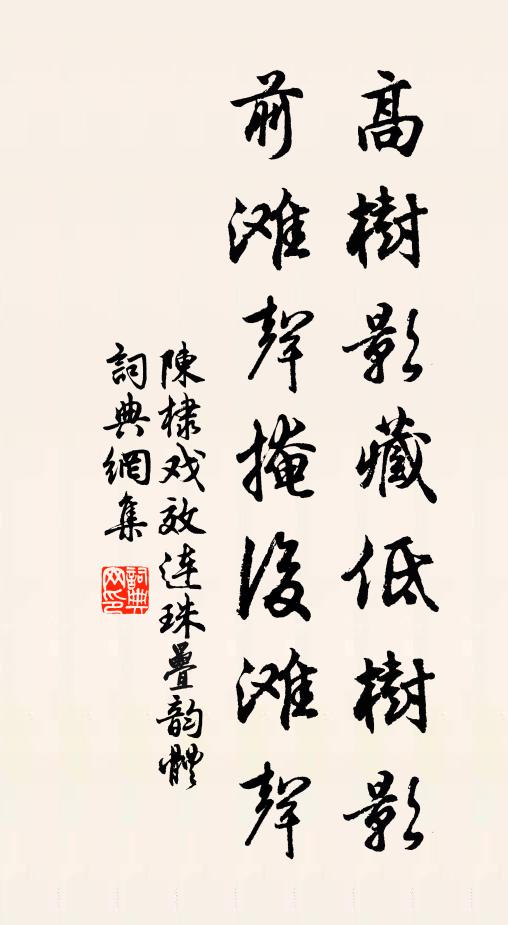 高樹影藏低樹影
前滩聲掩後滩聲
陳棣戏效连珠疊韵體
詞典網集
詞典网印